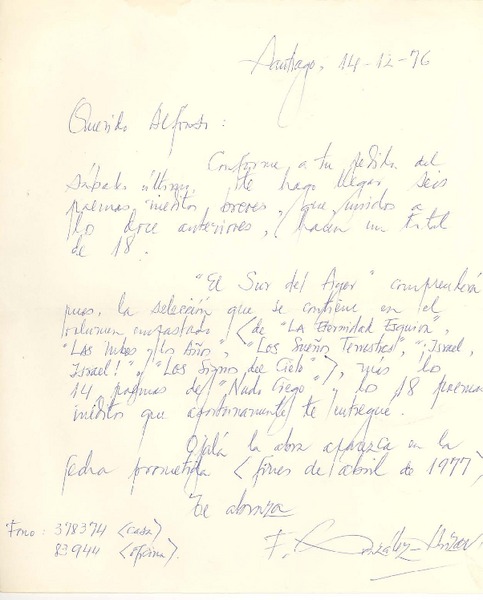 Santiago, 14-12-76
Querido Alfonso:
Conforme a tu pedido del
sábado último, te hago llegar seis
poemas inéditos breves, que unidos a
los doce anteriores, hacen un total
de 18.
"El Sur del Ayer" comprenderá
pues, la selección que se contiene en el
volumen empastado (de "La Eternidad Esquiva",
"Las Nubes y los Años", "Los Sueños Terrestres", "¡Israel,
Israel!" y "Los Signos del Cielo"), más los
14 poemas de "Nudo Ciego" y los 18 poemas
inéditos que te entregué.
Ojalá la obra aparezca en la
fecha prometida (fines de abril de 1977)
Te abraza
Fono: 378374 (casa)
83944 (oficina).
F. González-Urízar